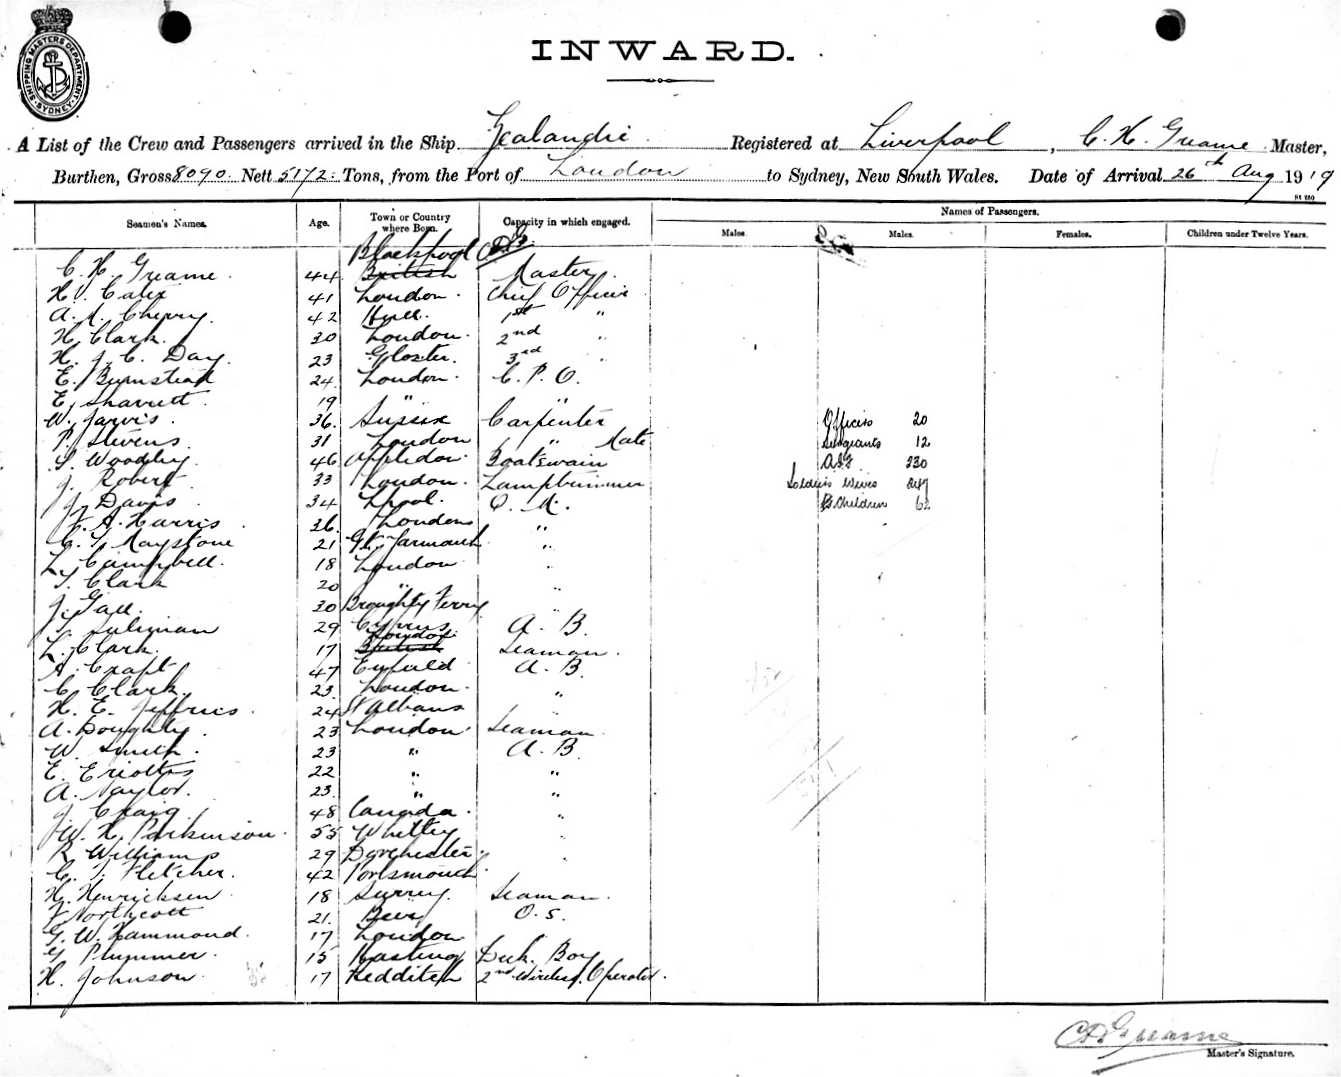 SHIPPING MASTERS DEPARTMENT SYDNEY
INWARD.
A List of the Crew and Passengers arrived in the Ship Zealandic Registered at Liverpool, C. H. Greame Master,
Burthen, Gross 8090. Nett 5172. Tons, from the Port of London to Sydney, New South Wales. Date of Arrival 26th Aug 1919
Seamen's Names. Age. Town or Country where Born. Capacity in which engaged. Names of Passengers.
Males. Males. Females. Children under Twelve Years.
Blackpool
C. H. Greame. 44 British Master.
41 London. Chief Officer
A. Cherry. 42 Hull. 1st "
H. Clark. 30 London. 2nd "
H. J. C. Day. 23 Gloster. 3rd "
E. Bumstead 24 London. C. P. O.
E. Sharrett. 19 " "
W. Jarvis. 36. Sussex Carpenter Officers 20
P. Stevens 31 London " Mate Sergeants 12
S. Woodley 46 Appledor. Boatswain 330
J. Robert 33 London. Lamptrimmer Soldiers Wives
J. Davis 34 L'pool. Q. M. Children
A. Harris 36. London "
C. T. Maystone 21 Gt. Yarmouth "
L. Campbell. 18 London "
T. Clark 20 " "
J. Gall. 30 Broughty Ferry "
Suliman 29 Cyprus A. B.
London
L. Clark. 17 British Seaman.
A. Craft 47 Enfield A. B.
C. Clark. 23 London. "
H. E. Jeffries. 24 St Albans "
A. Doughty. 23 London Seaman
W. Smith. 23 " A. B.
E. 22 " "
A. Taylor. 23. " "
J. Craig 48 Canada. "
W. H. Parkinson. 55 Whitby "
R. Williams 29 Dorchester "
C. T. Fletcher. 42 Portsmouth "
H. Henricksen 18 Surrey. Seaman.
Northcott 21. Beer O. S.
G. W. Hammond. 17 London
G. Plummer. 15 Hastings Deck Boy
H. Johnson. 17 Redditch 2nd Wireless Operator.
C H Greame
Master's Signature.